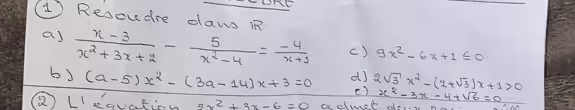 ① Resoudre dans IR
a) \frac{x-3}{x²+3x+2} - \frac{5}{x²-4} = \frac{-4}{x+1} c) 9x²-6x+1 ≤ 0
b) (a-5)x² - (3a-14)x+3=0 d) 2√3 x² - (2+√3)x+1>0
e) x²-3x-4+√6=0
② L'équation 2x²+3x-6=0 admet deux